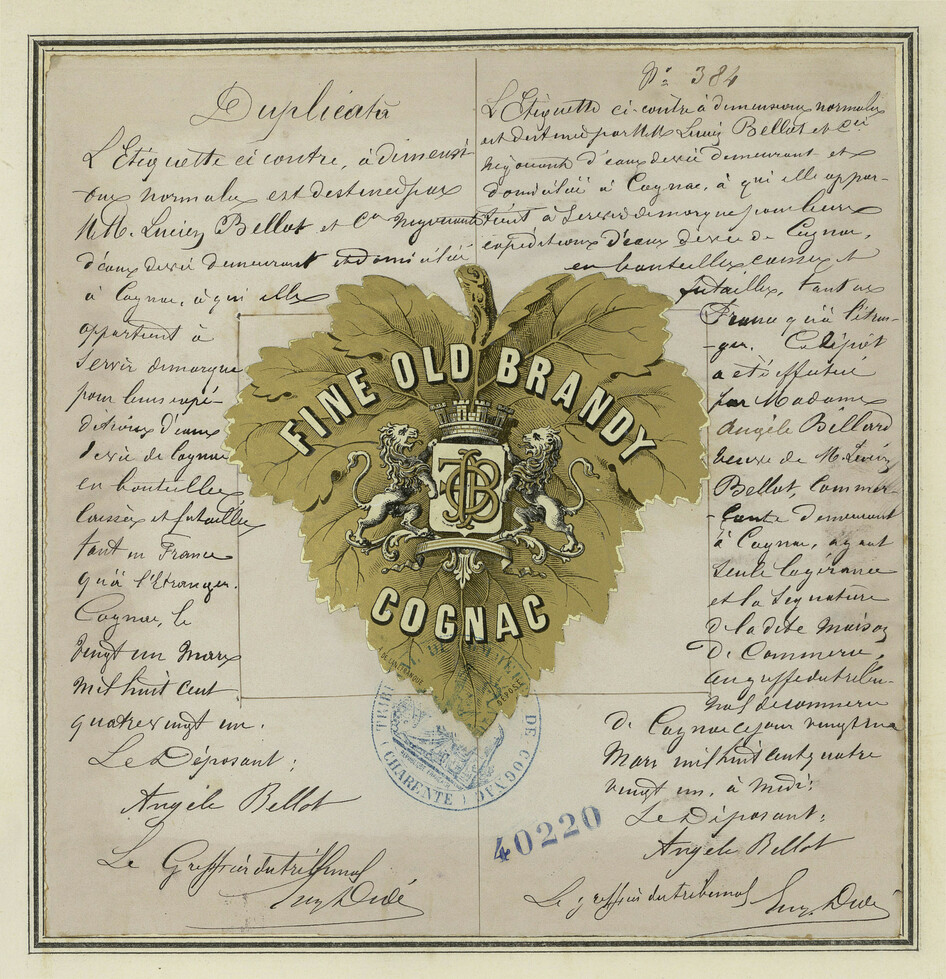 Duplicata
L'Etiquette ci contre, à dimensi
ons normales est destinée par
M.M. Lucien Bellot et Cie Negociants
d'eaux de vie demeurant et domicilié
à Cognac, à qui elle
appartient à
servir de marque
pour leurs expé-
ditions d'eaux
de vie de Cognac
en bouteilles
caisses et futailles
tant en France
qu'à l'Etranger.
Cognac, le
vingt un Mars
mil huit cent
quatre vingt un.
Le Déposant:
Angèle Bellot
Le Greffier du tribunal
Eug Didé
No 384
L'Etiquette ci-contre à dimensions normales
est destinée par MM Lucien Bellot et Cie
négociants d'eaux de vie demeurant et
domicilié à Cognac, à qui elle appar-
tient à servir de marque pour leurs
expéditions d'eaux de vie de Cognac,
en bouteilles caisses et
futailles, tant en
France qu'à l'étran-
-ger. Ce dépôt
a été effectué
par Madame
Angèle Billard
veuve de M. Lucien
Bellot, Commer-
-çante demeurant
à Cognac, ayant
seule la gérance
et la signature
de la dite Maison
de Commerce,
au greffe du tribu-
nal de commerce
de Cognac ce jour vingt un
Mars mil huit cent quatre
vingt un, à Midi.
Le Déposant:
Angèle Bellot
Le greffier du tribunal
Eug Didé
FINE OLD BRANDY
COGNAC
DE COGNAC
(CHARENTE)
DÉPOSÉ
40220